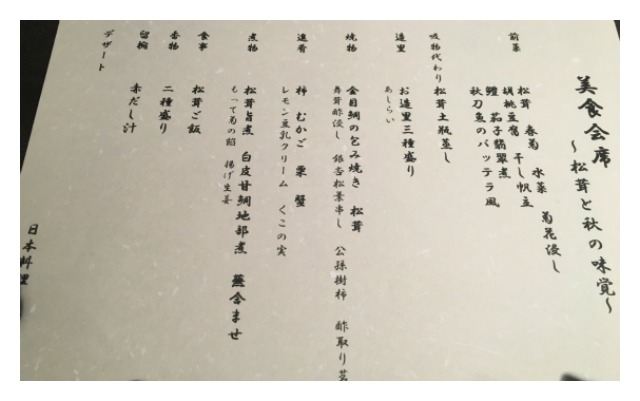 美食会席
～松茸と秋の味覚～
前菜
松茸 春菊 水菜 菊花浸し
胡桃豆腐 干し帆立
鱧 茄子翡翠煮
秋刀魚のバッテラ風
吸物代わり
松茸土瓶蒸し
造里
お造里三種盛り
あしらい
焼物
金目鯛の包み焼き 松茸
舞茸酢浸し 銀杏松葉串し 公孫樹柿 酢取り茗
進肴
柿 むかご 栗 蟹
レモン豆乳クリーム くこの実
煮物
松茸旨煮 白皮甘鯛地部煮 蕪含ませ
もって菊の餡 揚げ生姜
食事
松茸ご飯
香物
二種盛り
留椀
赤だし汁
デザート
日本料理